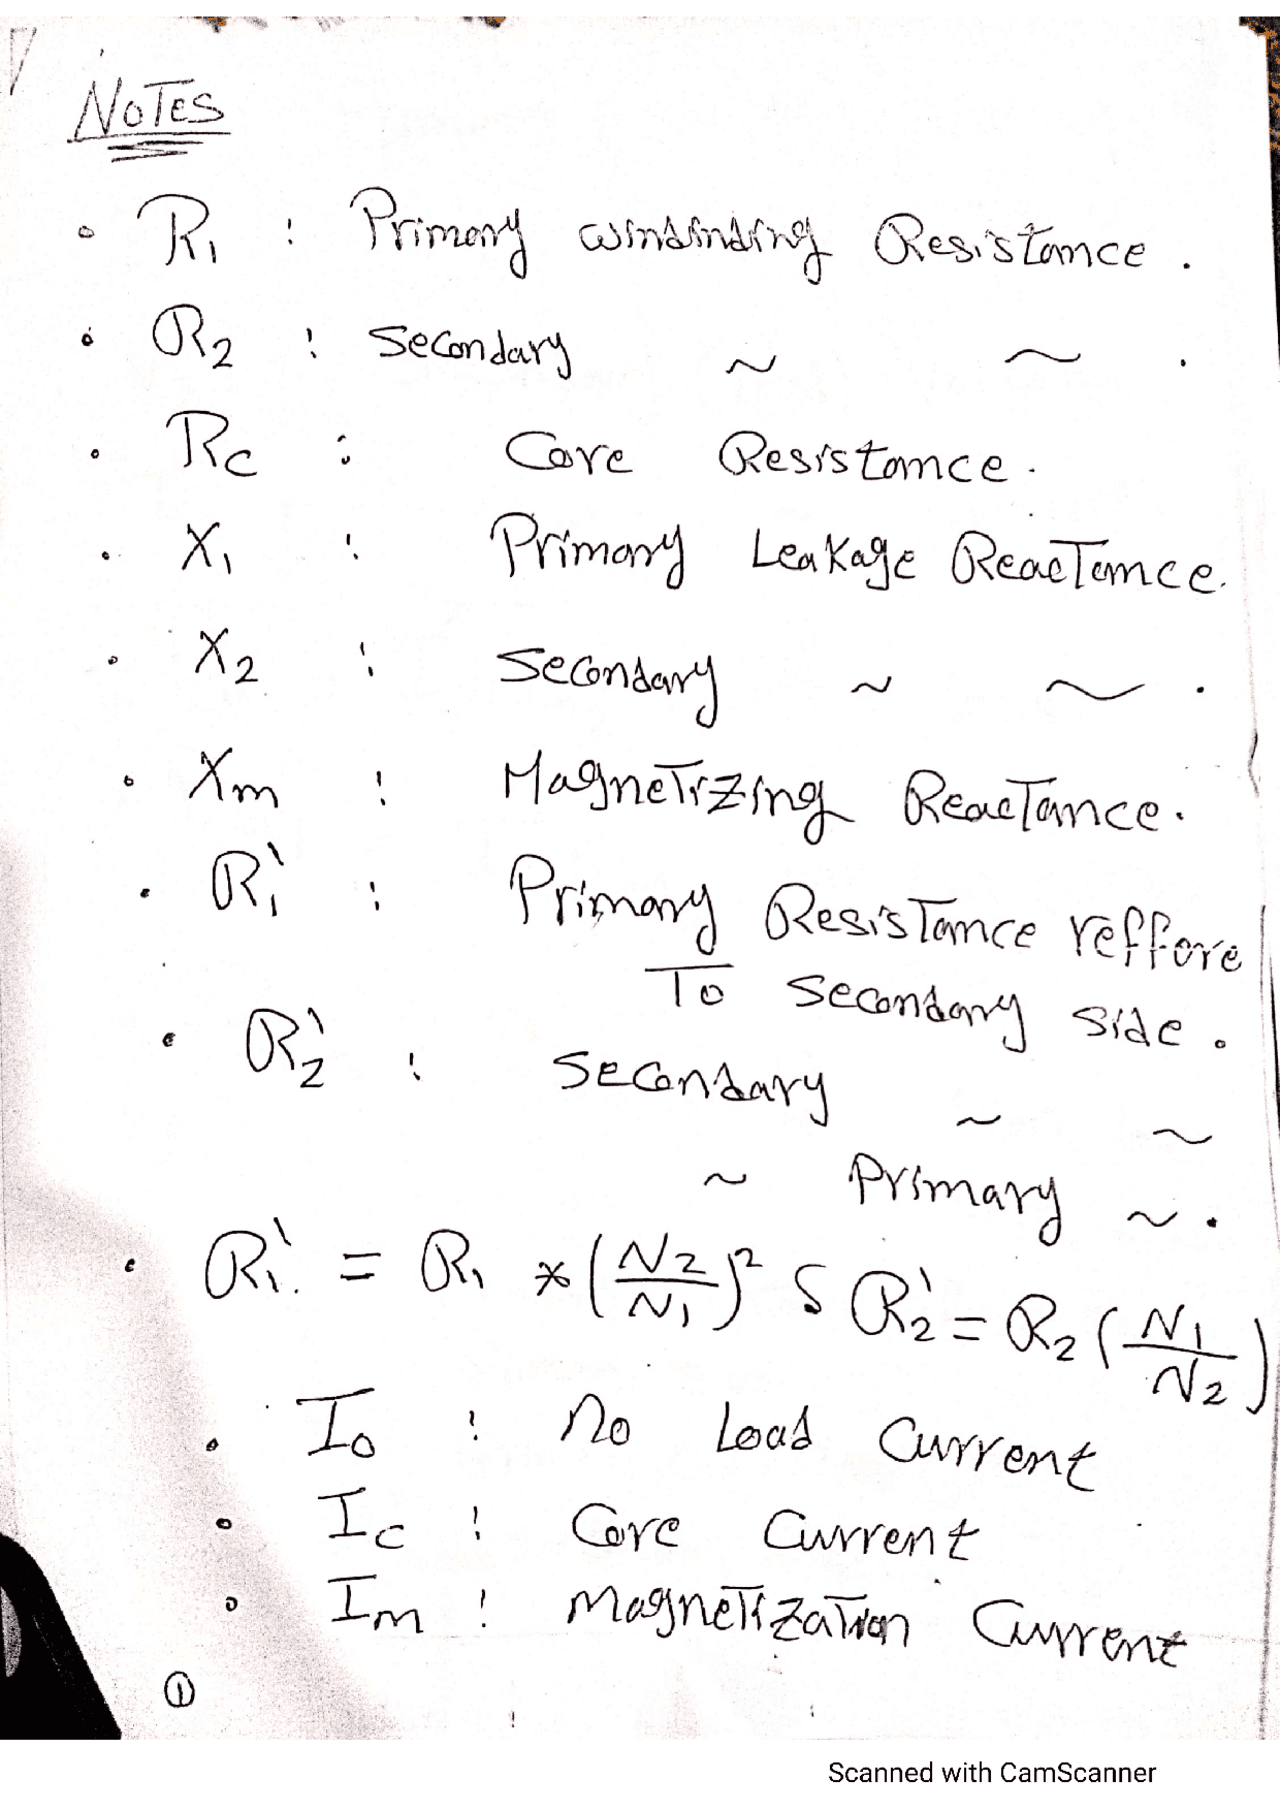 NOTES
• R1 : Primary windinding Resistance .
• R2 : Secondary ~ ~ .
• Rc : Core Resistance .
• X1 : Primary Leakage Reactance.
• X2 : Secondary ~ ~ .
• Xm : Magnetizing Reactance .
• R1' : Primary Resistance reffore
To Secondary Side .
• R2' : Secondary ~ ~
~ Primary ~ .
• R1' = R1 * (N2/N1)² , R2' = R2 (N1/N2)
• Io : no Load Current
• Ic : Core Current
• Im : Magnetization Current
①
Scanned with CamScanner